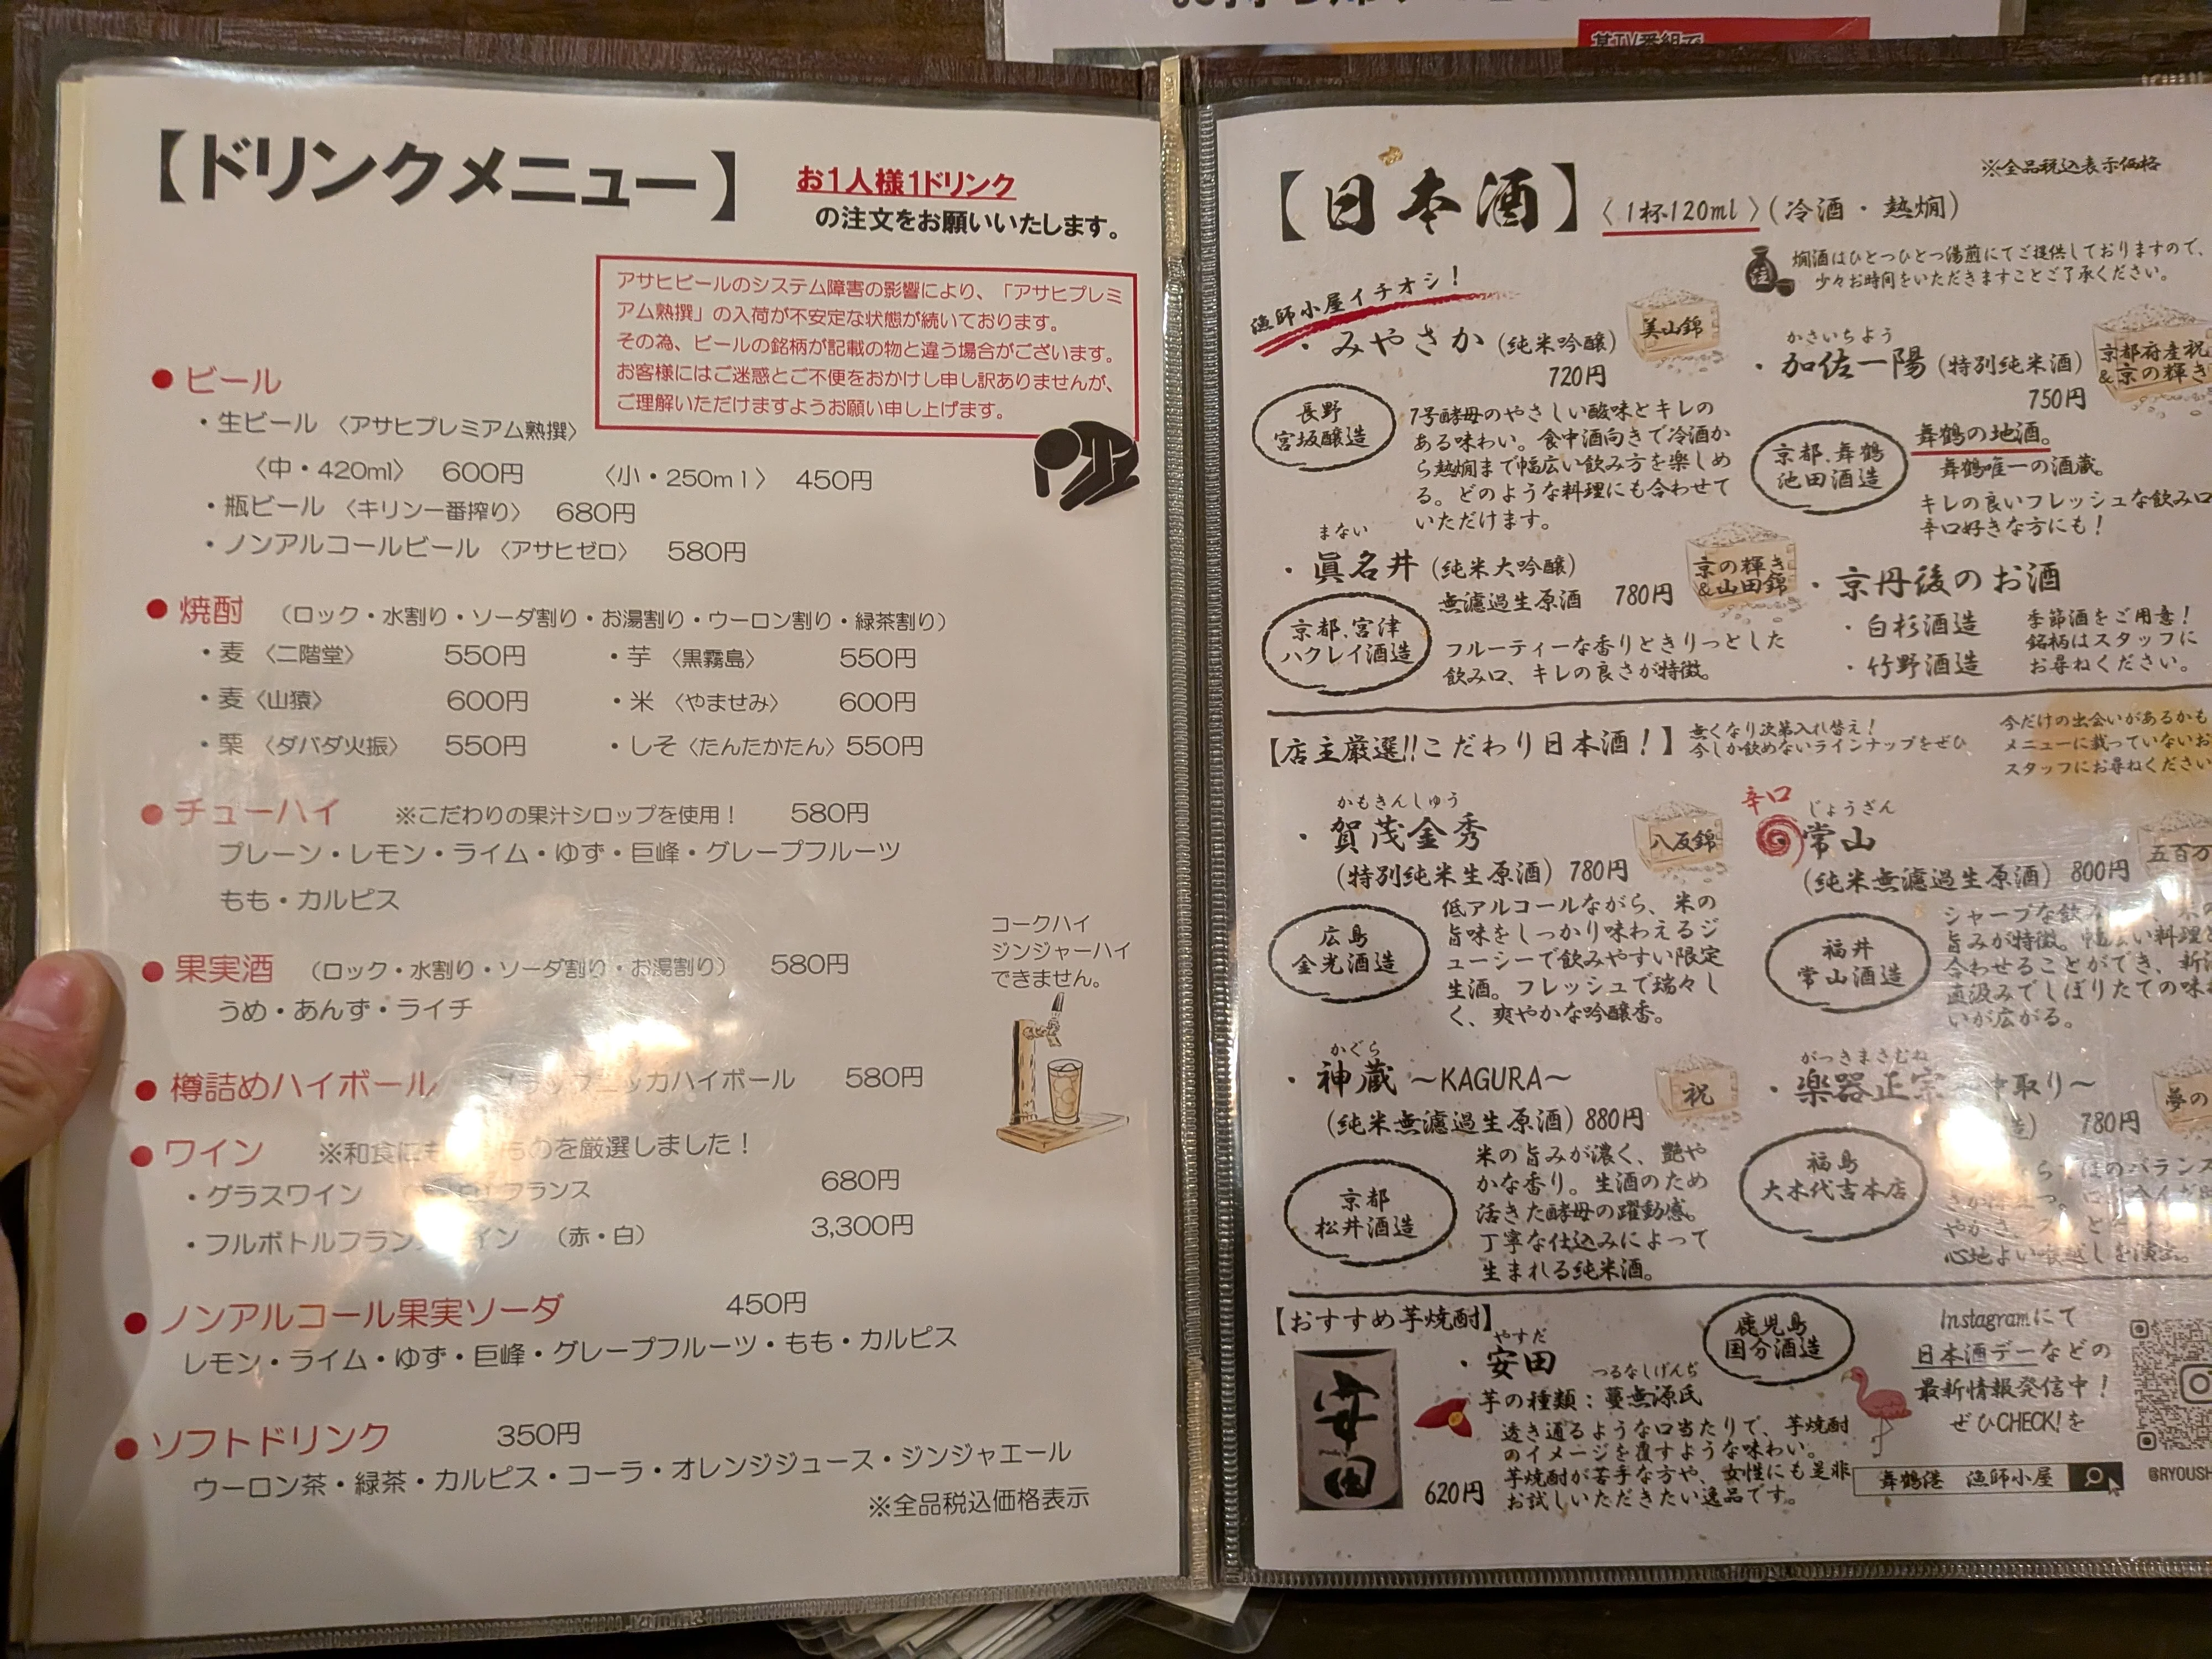 某TV番組で
【ドリンクメニュー】
お1人様1ドリンク
の注文をお願いいたします。
アサヒビールのシステム障害の影響により、「アサヒプレミ
アム熟撰」の入荷が不安定な状態が続いております。
その為、ビールの銘柄が記載の物と違う場合がございます。
お客様にはご迷惑とご不便をおかけし申し訳ありませんが、
ご理解いただけますようお願い申し上げます。
● ビール
・生ビール 〈アサヒプレミアム熟撰〉
〈中・420ml〉 600円 〈小・250ml〉 450円
・瓶ビール 〈キリン一番搾り〉 680円
・ノンアルコールビール 〈アサヒゼロ〉 580円
● 焼酎 (ロック・水割り・ソーダ割り・お湯割り・ウーロン割り・緑茶割り)
・麦 〈二階堂〉 550円 ・芋 〈黒霧島〉 550円
・麦 〈山猿〉 600円 ・米 〈やませみ〉 600円
・栗 〈ダバダ火振〉 550円 ・しそ〈たんたかたん〉550円
● チューハイ ※こだわりの果汁シロップを使用! 580円
プレーン・レモン・ライム・ゆず・巨峰・グレープフルーツ
もも・カルピス
コークハイ
ジンジャーハイ
できません。
● 果実酒 (ロック・水割り・ソーダ割り・お湯割り) 580円
うめ・あんず・ライチ
● 樽詰めハイボール ニッカハイボール 580円
● ワイン ※和食に ものを厳選しました!
・グラスワイン フランス 680円
・フルボトルフラン イン (赤・白) 3,300円
● ノンアルコール果実ソーダ 450円
レモン・ライム・ゆず・巨峰・グレープフルーツ・もも・カルピス
● ソフトドリンク 350円
ウーロン茶・緑茶・カルピス・コーラ・オレンジジュース・ジンジャエール
※全品税込価格表示
※全品税込表示価格
【日本酒】〈1杯120ml〉(冷酒・熱燗)
燗酒はひとつひとつ湯煎にてご提供しておりますので、
少々お時間をいただきますことご了承ください。
漁師小屋イチオシ!
・みやさか (純米吟醸)
720円
美山錦
長野
宮坂醸造
7号酵母のやさしい酸味とキレの
ある味わい。食中酒向きで冷酒か
ら熱燗まで幅広い飲み方を楽しめ
る。どのような料理にも合わせて
いただけます。
かさいちよう
・加佐一陽 (特別純米酒)
750円
京都府産祝
&京の輝き
京都.舞鶴
池田酒造
舞鶴の地酒。
舞鶴唯一の酒蔵。
キレの良いフレッシュな飲み口
辛口好きな方にも!
まない
・眞名井 (純米大吟醸)
無濾過生原酒 780円
京の輝き
&山田錦
京都.宮津
ハクレイ酒造
フルーティーな香りときりっとした
飲み口、キレの良さが特徴。
・京丹後のお酒
・白杉酒造
・竹野酒造
季節酒をご用意!
銘柄はスタッフに
お尋ねください。
【店主厳選!!こだわり日本酒!】
無くなり次第入れ替え!
今しか飲めないラインナップをぜひ
今だけの出会いがあるかも
メニューに載っていないお
スタッフにお尋ねください
かもきんしゅう
・賀茂金秀
(特別純米生原酒) 780円
八反錦
広島
金光酒造
低アルコールながら、米の
旨味をしっかり味わえるジ
ューシーで飲みやすい限定
生酒。フレッシュで瑞々し
く、爽やかな吟醸香。
辛口
じょうざん
常山
(純米無濾過生原酒) 800円
五百万
福井
常山酒造
シャープな飲み
旨みが特徴。幅広い料理と
合わせることができ、新酒
直汲みでしぼりたての味わ
いが広がる。
かぐら
・神蔵 ～KAGURA～
(純米無濾過生原酒) 880円
祝
京都
松井酒造
米の旨みが濃く、艶や
かな香り。生酒のため
活きた酵母の躍動感。
丁寧な仕込みによって
生まれる純米酒。
がっきまさむね
・楽器正宗 中取り～
780円
夢の
福島
大木代吉本店
のバランス
心地よい喉越しを演出。
【おすすめ芋焼酎】
やすだ
・安田
安田
鹿児島
国分酒造
つるなしげんぢ
芋の種類:蔓無源氏
透き通るような口当たりで、芋焼酎
のイメージを覆すような味わい。
芋焼酎が苦手な方や、女性にも是非
お試しいただきたい逸品です。
620円
Instagramにて
日本酒デーなどの
最新情報発信中!
ぜひCHECK!を
舞鶴港 漁師小屋
@RYOUSH